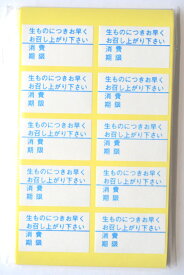 生ものにつきお早く 生ものにつきお早く
お召し上がり下さい お召し上がり下さい
消費 消費
期限 期限
生ものにつきお早く 生ものにつきお早く
お召し上がり下さい お召し上がり下さい
消費 消費
期限 期限
生ものにつきお早く 生ものにつきお早く
お召し上がり下さい お召し上がり下さい
消費 消費
期限 期限
生ものにつきお早く 生ものにつきお早く
お召し上がり下さい お召し上がり下さい
消費 消費
期限 期限
生ものにつきお早く 生ものにつきお早く
お召し上がり下さい お召し上がり下さい
消費 消費
期限 期限